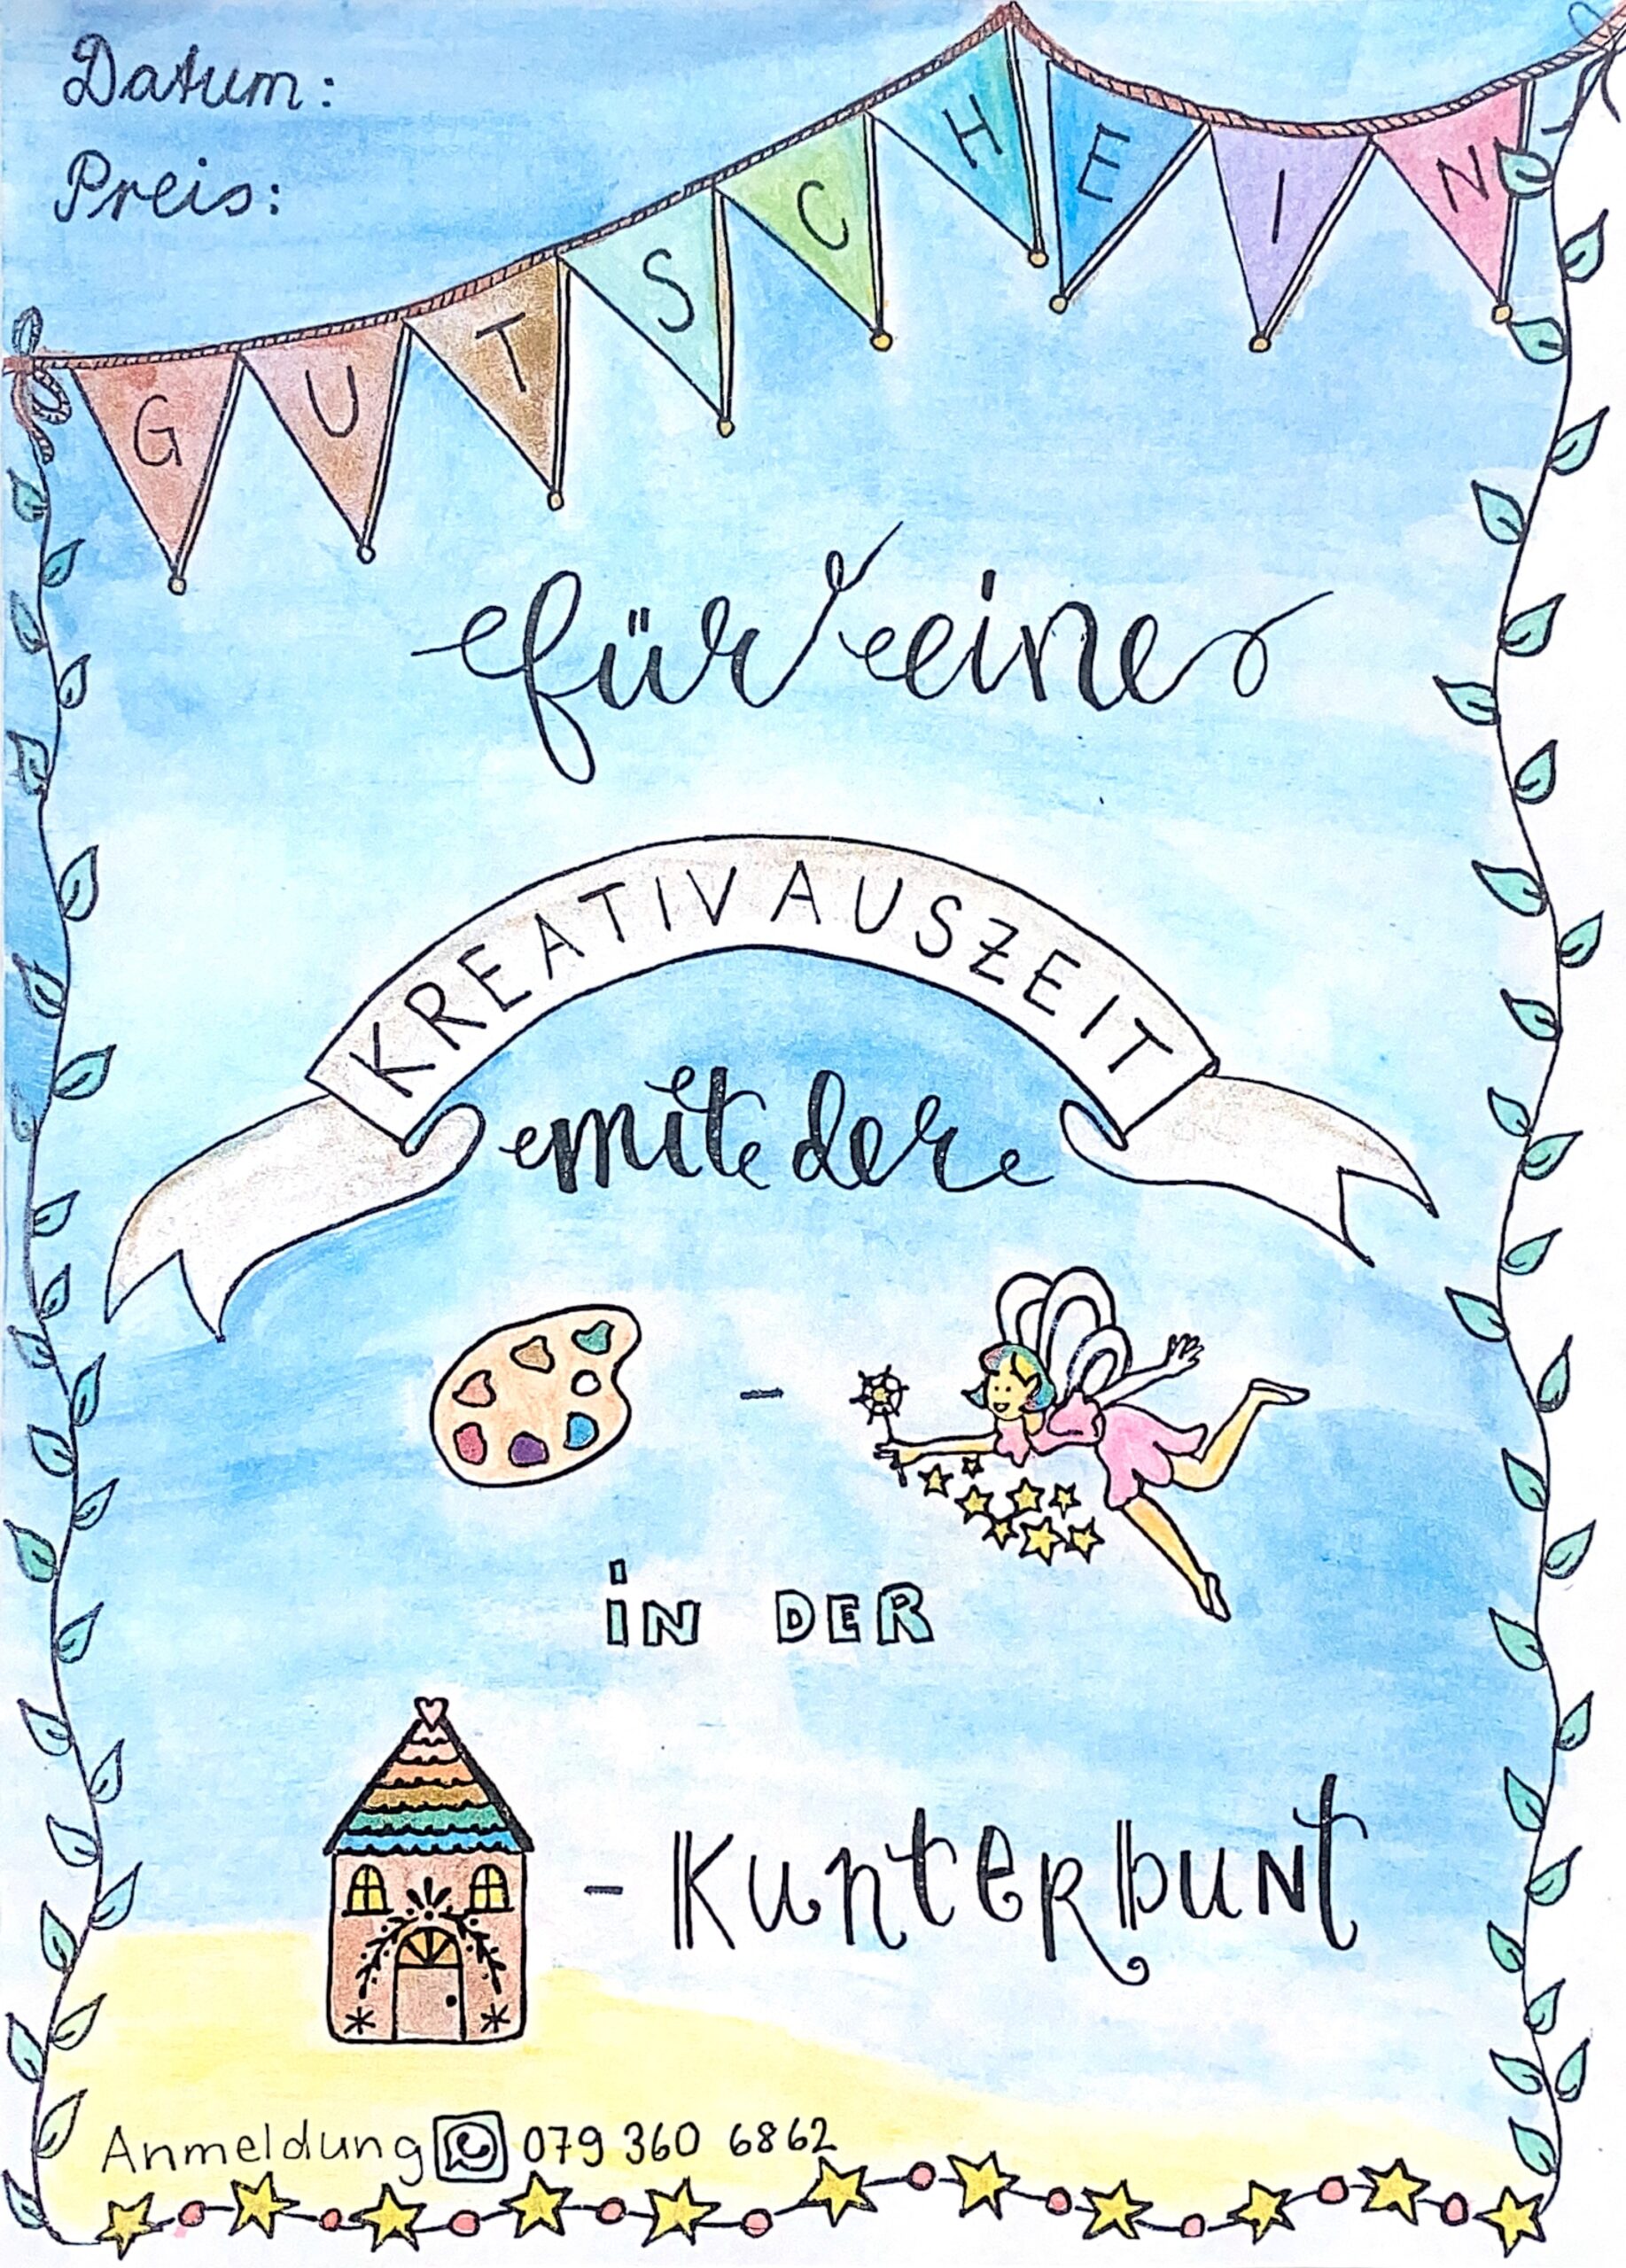 Datum:
Preis:
GUTSCHEIN
für eine
KREATIVAUSZEIT
mit der
-
iN DER
- KunterbuNt
Anmeldung 079 360 6862